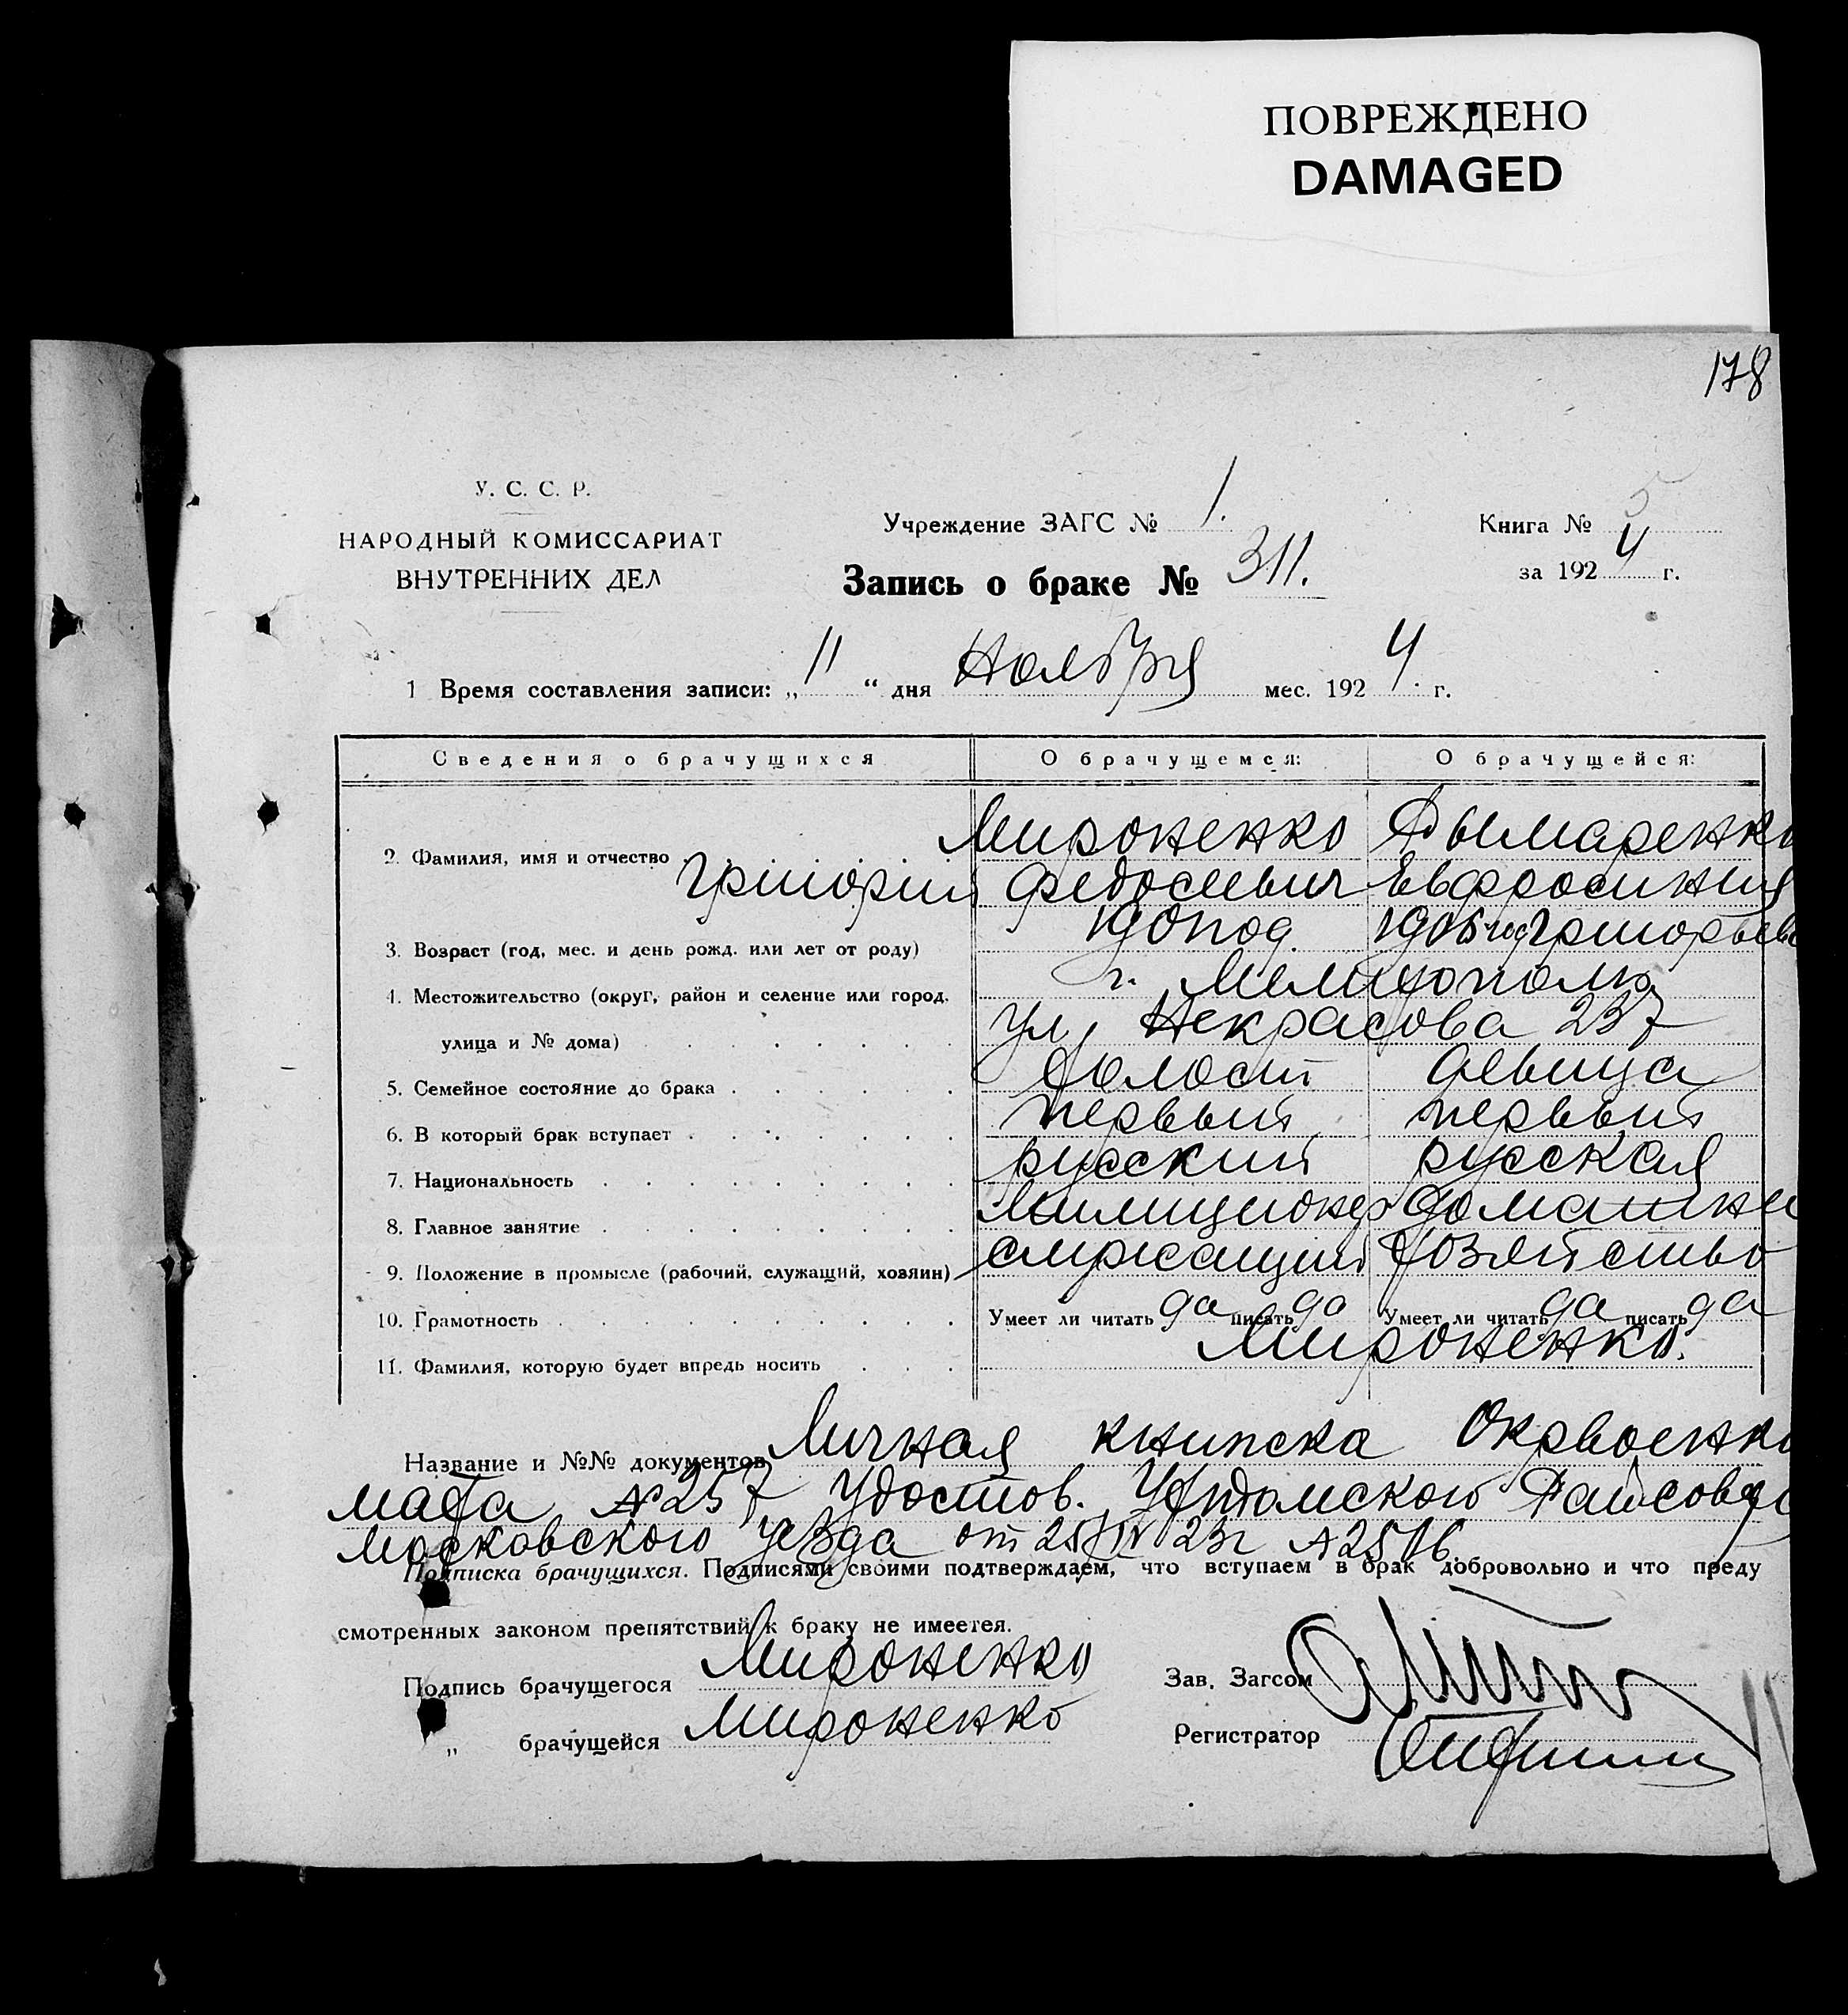 ПОВРЕЖДЕНО
DAMAGED
178
У. С. С. Р.
НАРОДНЫЙ КОМИССАРИАТ
ВНУТРЕННИХ ДЕЛ
Учреждение ЗАГС № 1.
Книга № 5
за 1924 г.
Запись о браке № 311.
1 Время составления записи: „11“ дня Ноября мес. 1924. г.
Сведения о брачущихся О брачущемся: О брачущейся:
Мироненко Дымаренко
2. Фамилия, имя и отчество
Григорий Федосиевич Евфросиния
190 год. 1905 год Григорьевн
3. Возраст (год, мес. и день рожд. или лет от роду)
г. Мелитополь
4. Местожительство (округ, район и селение или город,
ул. Некрасова 237
улица и № дома)
5. Семейное состояние до брака холост девица
6. В который брак вступает первый первый
7. Национальность русский русская
8. Главное занятие Милиционер домашнее
9. Положение в промысле (рабочий, служащий, хозяин) служащий хозяйство
10. Грамотность Умеет ли читать да писать да Умеет ли читать да писать да
11. Фамилия, которую будет впредь носить Мироненко.
Название и №№ документов Личная книжка Окрвоенко
мата №257 Удостов. Ухтомского Райсовета
Московского уезда от 25/IV 23г №2516.
Подписка брачущихся. Подписями своими подтверждаем, что вступаем в брак добровольно и что преду
смотренных законом препятствий к браку не имеется.
Подпись брачущегося Мироненко
Зав. Загсом
„ брачущейся Мироненко
Регистратор